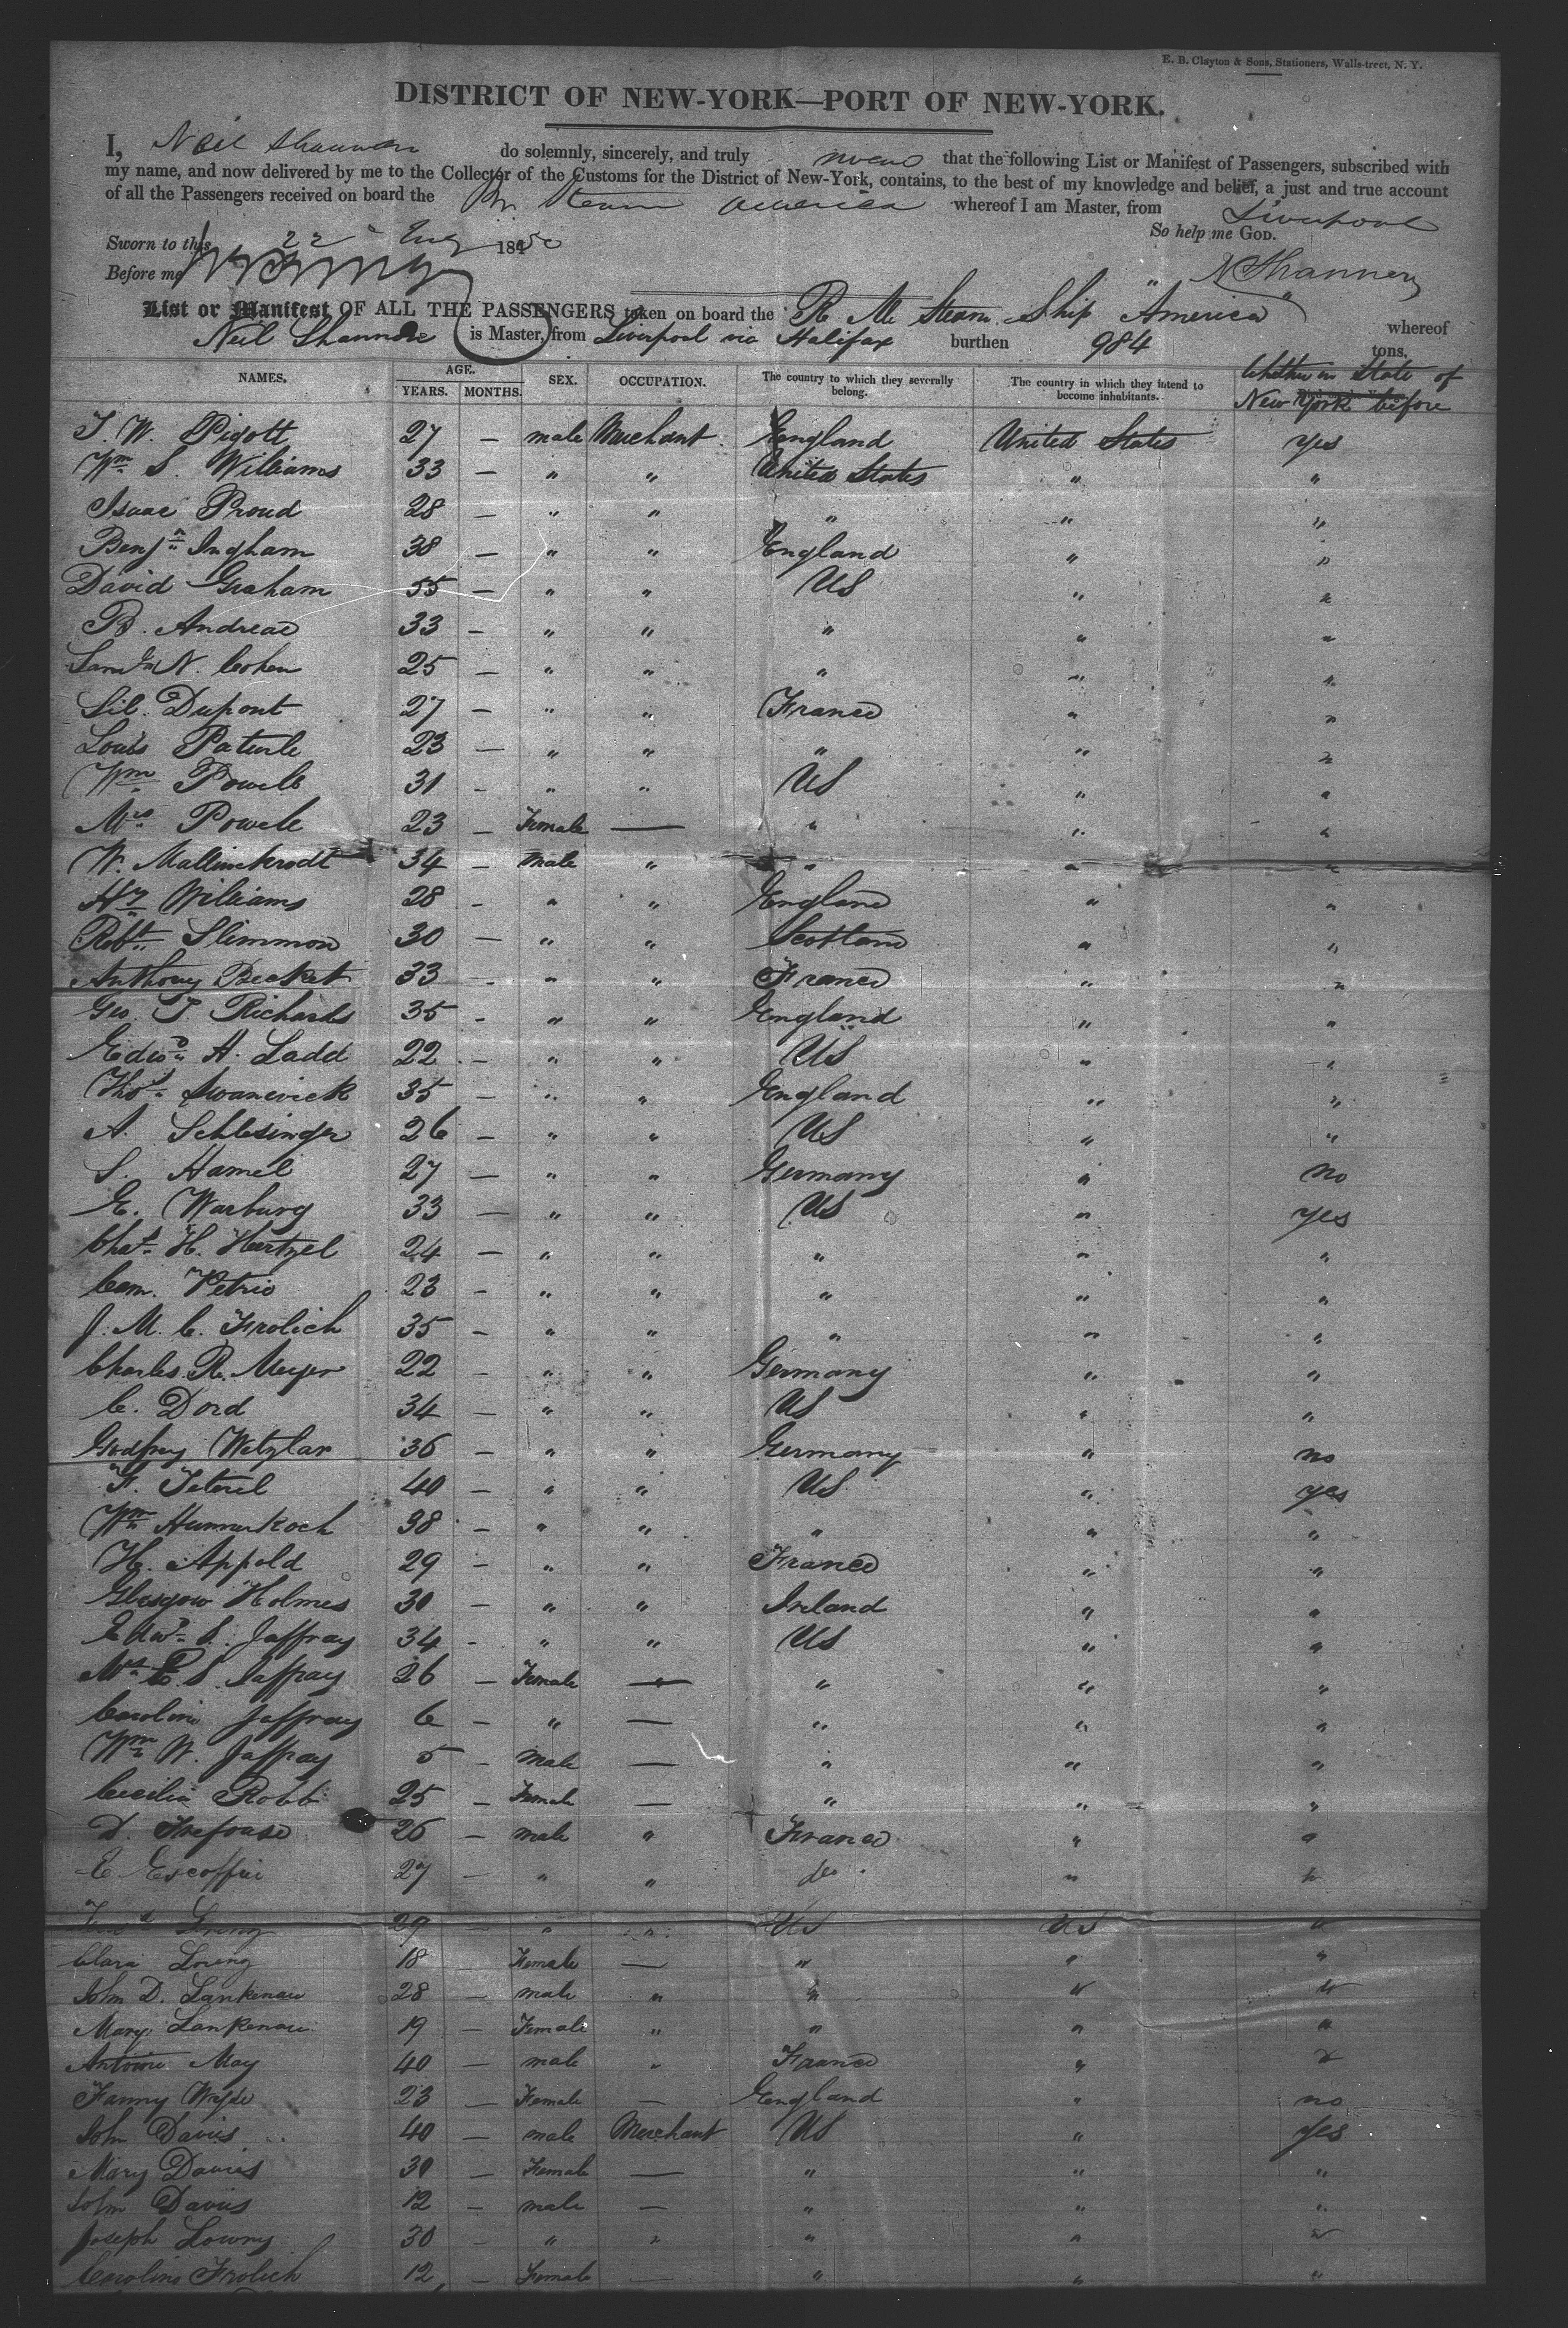 E. B. Clayton & Sons, Stationers, Walls-treet, N. Y.
DISTRICT OF NEW-YORK—PORT OF NEW-YORK.
I, Neil Shannon do solemnly, sincerely, and truly swear that the following List or Manifest of Passengers, subscribed with
my name, and now delivered by me to the Collector of the Customs for the District of New-York, contains, to the best of my knowledge and belief, a just and true account
of all the Passengers received on board the Br Steam America whereof I am Master, from Liverpool
So help me GOD.
Sworn to this 22 Aug 1850
Before me
N Shannon
List or Manifest OF ALL THE PASSENGERS taken on board the R. M. Steam Ship "America" whereof
Neil Shannon is Master, from Liverpool via Halifax burthen 984 tons.
NAMES. AGE. YEARS. MONTHS. SEX. OCCUPATION. The country to which they severally belong. The country in which they intend to become inhabitants. Whether in State of New York before
J. W. Pigott 27 — male Merchant England United States yes
Wm S. Williams 33 — " " United States " "
Isaac Proud 28 — " " " " "
Benjn Ingham 38 — " " England " "
David Graham 55 — " " US " "
B. Andreae 33 — " " " " "
Saml N. Cohen 25 — " " " " "
Dupont 27 — " " France " "
Louis Paturle 23 — " " " " "
Wm Powell 31 - " " US " "
Mrs Powell 23 — Female — " " "
W. Mallinckrodt 34 — male " " " "
Hy Williams 28 - " " England " "
Robt Slimmon 30 — " " Scotland " "
Anthony Becket 33 - " " France " "
Geo. T Richards 35 - " " England " "
Edwd A. Ladd 22 — " " US " "
Thos Swanwick 35 — " " England " "
A. Schlesinger 26 — " " US " "
S. Hamel 27 — " " Germany " no
E. Warburg 33 — " " US " yes
Chas H. Hertzel 24 — " " " " "
Cam. Petrie 23 - " " " " "
J. M. C. Frolich 35 - " " " " "
Charles R. Meyer 22 — " " Germany " "
C. Dord 34 — " " US " "
Godfrey Wetzlar 36 — " " Germany " no
F. 40 — " " US " yes
Wm 38 - " " " " "
H. Appold 29 - " " France " "
Glasgow Holmes 30 — " " Ireland " "
Edwd S. Jaffray 34 - " " US " "
Mrs E. S. Jaffray 26 — Female — " " "
Caroline Jaffray 6 — " — " " "
Wm W. Jaffray 5 - male — " " "
Cecilia Robb 25 — Female — " " "
D. 26 — male " France " "
E Escoffie 27 — " " do " "
Loring 29 — " " US US "
Clara Loring 18 — Female — " " "
John D. Lankenau 28 — male " " " "
Mary Lankenau 19 — Female " " " "
Antoine May 40 — male " France " "
Fanny 23 — Female — England " no
John Davis 40 — male Merchant US " yes
Mary Davis 30 — Female — " " "
John Davis 12 — male — " " "
Joseph Lowry 30 — " " " " "
Caroline Frolich 12 — Female — " " "